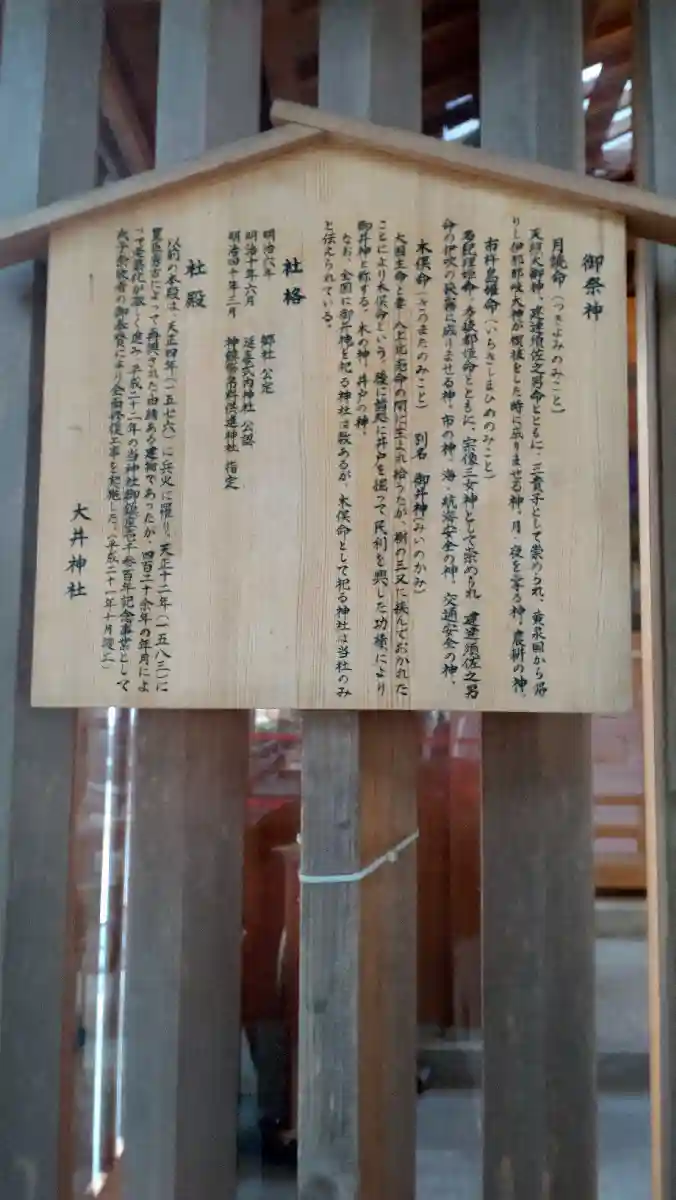 御祭神
月読命(つきよみのみこと)
天照大御神、建速須佐之男命とともに、三貴子として崇められ、黄泉国から帰
りし伊那那岐大神が禊祓をした時に成りませる神。月・夜を掌る神。農耕の神。
市杵島姫命(いちきしまひめのみこと)
多紀理姫命、多岐都姫命とともに、宗像三女神として崇められ、建速須佐之男
命の伊吹の狭霧に成りませる神。市の神、海・航海安全の神。交通安全の神。
木俣命(きのまたのみこと) 別名 御井神(みいのかみ)
大国主命と妻・八上比売命の間に生まれ給うたが、樹の三又に挟んでおかれた
ことにより木俣命という。後に諸処に井戸を掘って民利を興した功績により
御井神と称する。木の神、井戸の神。
なお、全国に御井神を祀る神社は数あるが、木俣命として祀る神社は当社のみ
と伝えられている。
社格
明治六年 郷社 公定
明治十年六月 延喜式内神社 公認
明治四十年三月 神饌幣帛料供進神社 指定
社殿
以前の本殿は、天正四年(一五七六)に兵火に罹り、天正十二年(一五八三)に
豊臣秀吉によって再興された由緒ある建物であったが、四百二十余年の年月によ
って老築化が激しく進み、平成二十二年の当神社御鎮座壱千参百年記念事業として
氏子崇敬者の御奉賛により全面修復工事を実施した。(平成二十一年十月竣工)
大井神社